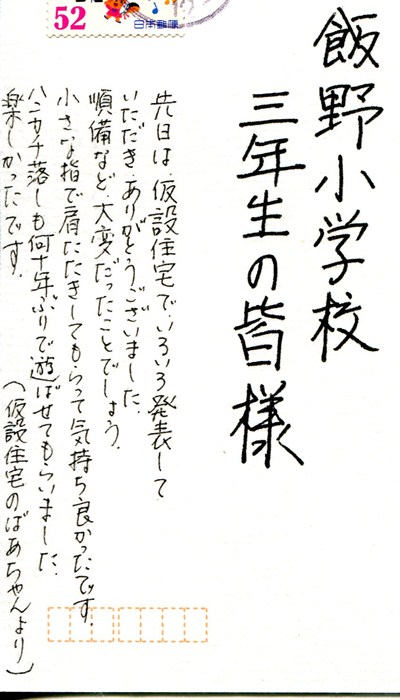 52
日本郵便
飯野小学校
三年生の皆様
先日は、仮設住宅で、いろいろ発表して
いただき、ありがとうございました。
順備など、大変だったことでしょう。
小さな指で肩たたきしてもらって気持ち良かったです。
ハンカチ落しも何十年ぶりで、遊ばせてもらいました。
楽しかったです。
(仮設住宅のばあちゃんより)